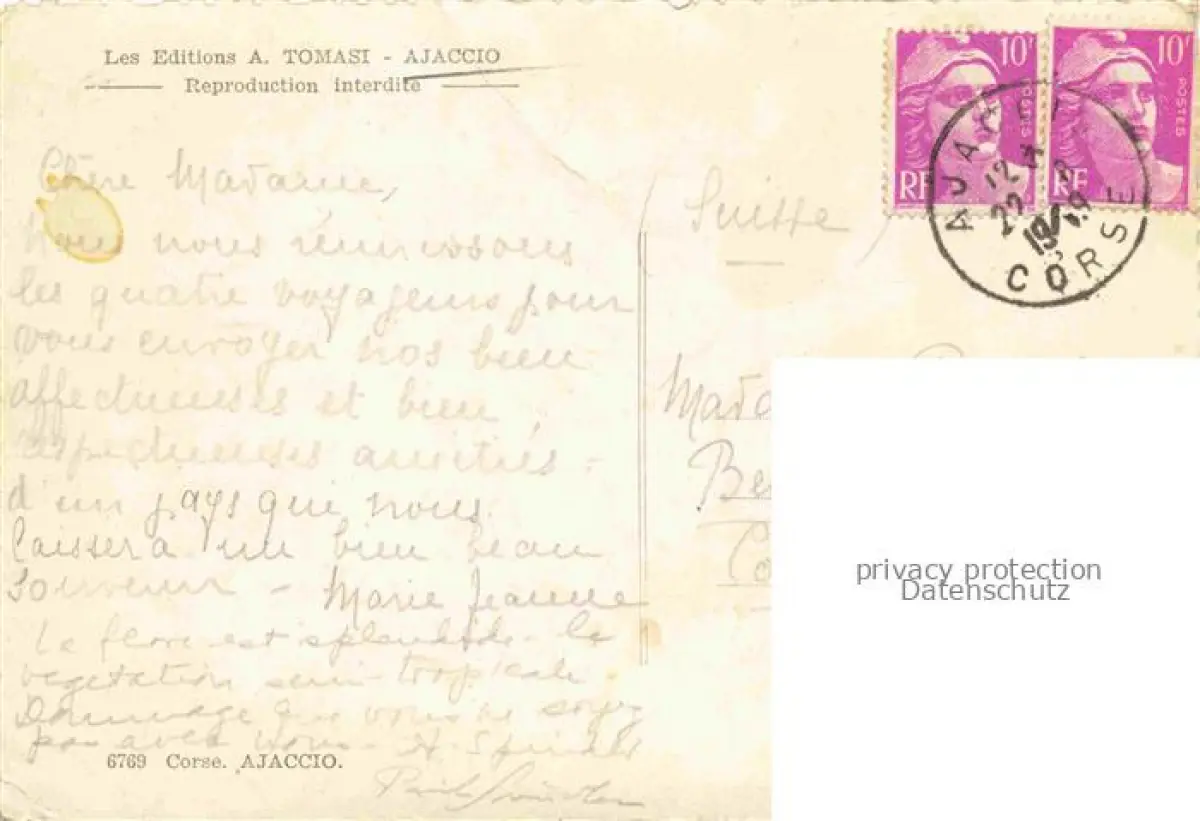 Les Editions A. TOMASI - AJACCIO
Reproduction interdite
Chère Madame,
Nous nous réunissons
les quatre voyageurs pour
vous envoyer nos bien
affectueuses et bien
respectueuses amitiés -
d'un pays qui nous
laissera un bien beau
souvenir - Marie Jeanne
La flore est splendide - la
vegetation semi-tropicale
Dommage que vous ne soyez
pas avec nous - A. Spindler
6769 Corse. AJACCIO.
10f
POSTES
RF
10f
POSTES
RF
12 H
22
19
CORSE
Suisse
privacy protection
Datenschutz